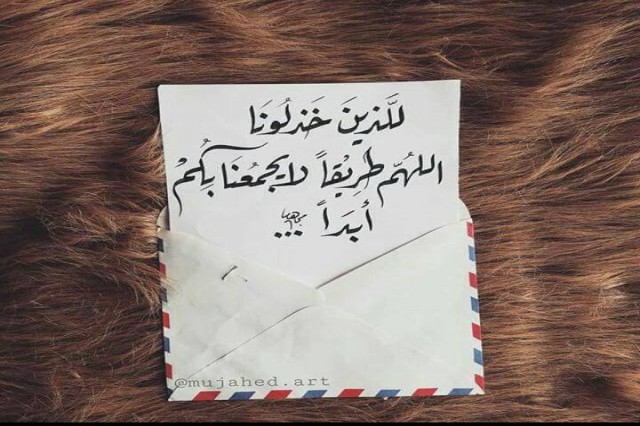 للَّذينَ خَذلُونَا
اللهُمّ طَرِيْقاً لايجمعُنَا بِكُمْ
أبَدَاً ...
@mujahed.art